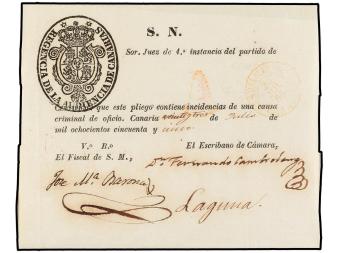 S. N.
REGENCIA DE LA AUDIENCIA DE CANARIAS
Sor. Juez de 1.ª instancia del partido de
que este pliego contiene incidencias de una causa
criminal de oficio. Canaria veintitres de Julio de
mil ochocientos cincuenta y cinco.
V.º B.º El Escribano de Cámara,
El Fiscal de S. M.,
Jose M.ª
Laguna.